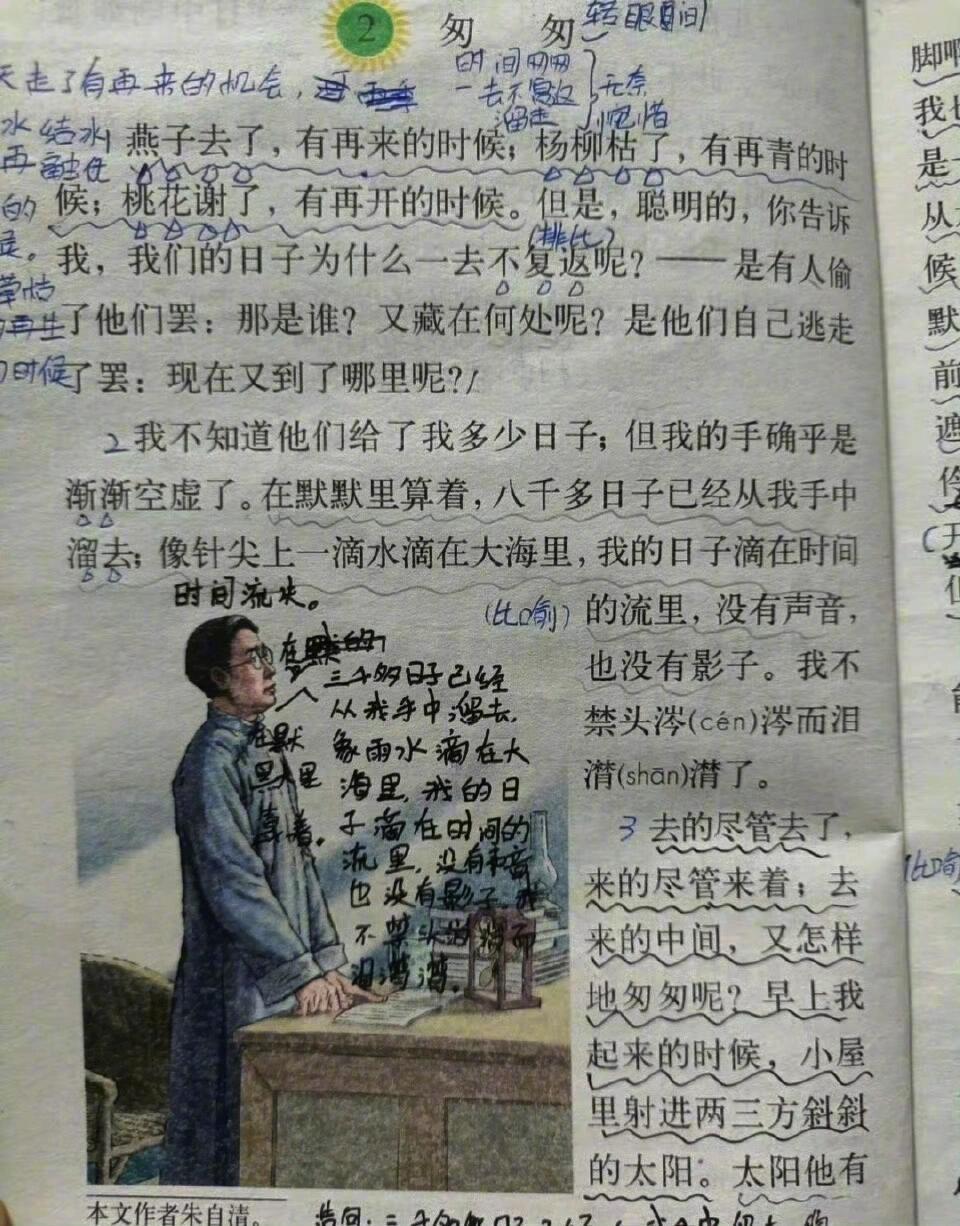 2 匆 匆 转眼间
时间匆匆
一去不复返 无奈
溜走 惋惜
天走了有再来的机会，
水 结冰
再 融化
的
燕子去了，有再来的时候；杨柳枯了，有再青的时
候；桃花谢了，有再开的时候。但是，聪明的，你告诉
(排比)
我，我们的日子为什么一去不复返呢？——是有人偷
了他们罢：那是谁？又藏在何处呢？是他们自己逃走
再生
时候
了罢：现在又到了哪里呢？/
2 我不知道他们给了我多少日子；但我的手确乎是
渐渐空虚了。在默默里算着，八千多日子已经从我手中
溜去；像针尖上一滴水滴在大海里，我的日子滴在时间
时间流失。
(比喻) 的流里，没有声音，
也没有影子。我不
禁头涔(cén)涔而泪
潸(shān)潸了。
三千多日子已经
从我手中溜去，
象雨水滴在大
海里，我的日
子滴在时间的
流里，没有声音
也没有影子 我
不禁头涔涔而
泪潸潸。
在默
默里
算着。
3 去的尽管去了，
来的尽管来着；去
来的中间，又怎样
地匆匆呢？早上我
起来的时候，小屋
里射进两三方斜斜
的太阳。太阳他有
本文作者朱自清。
脚啊
我也
是
从
候
默
前
遮
但
(比喻